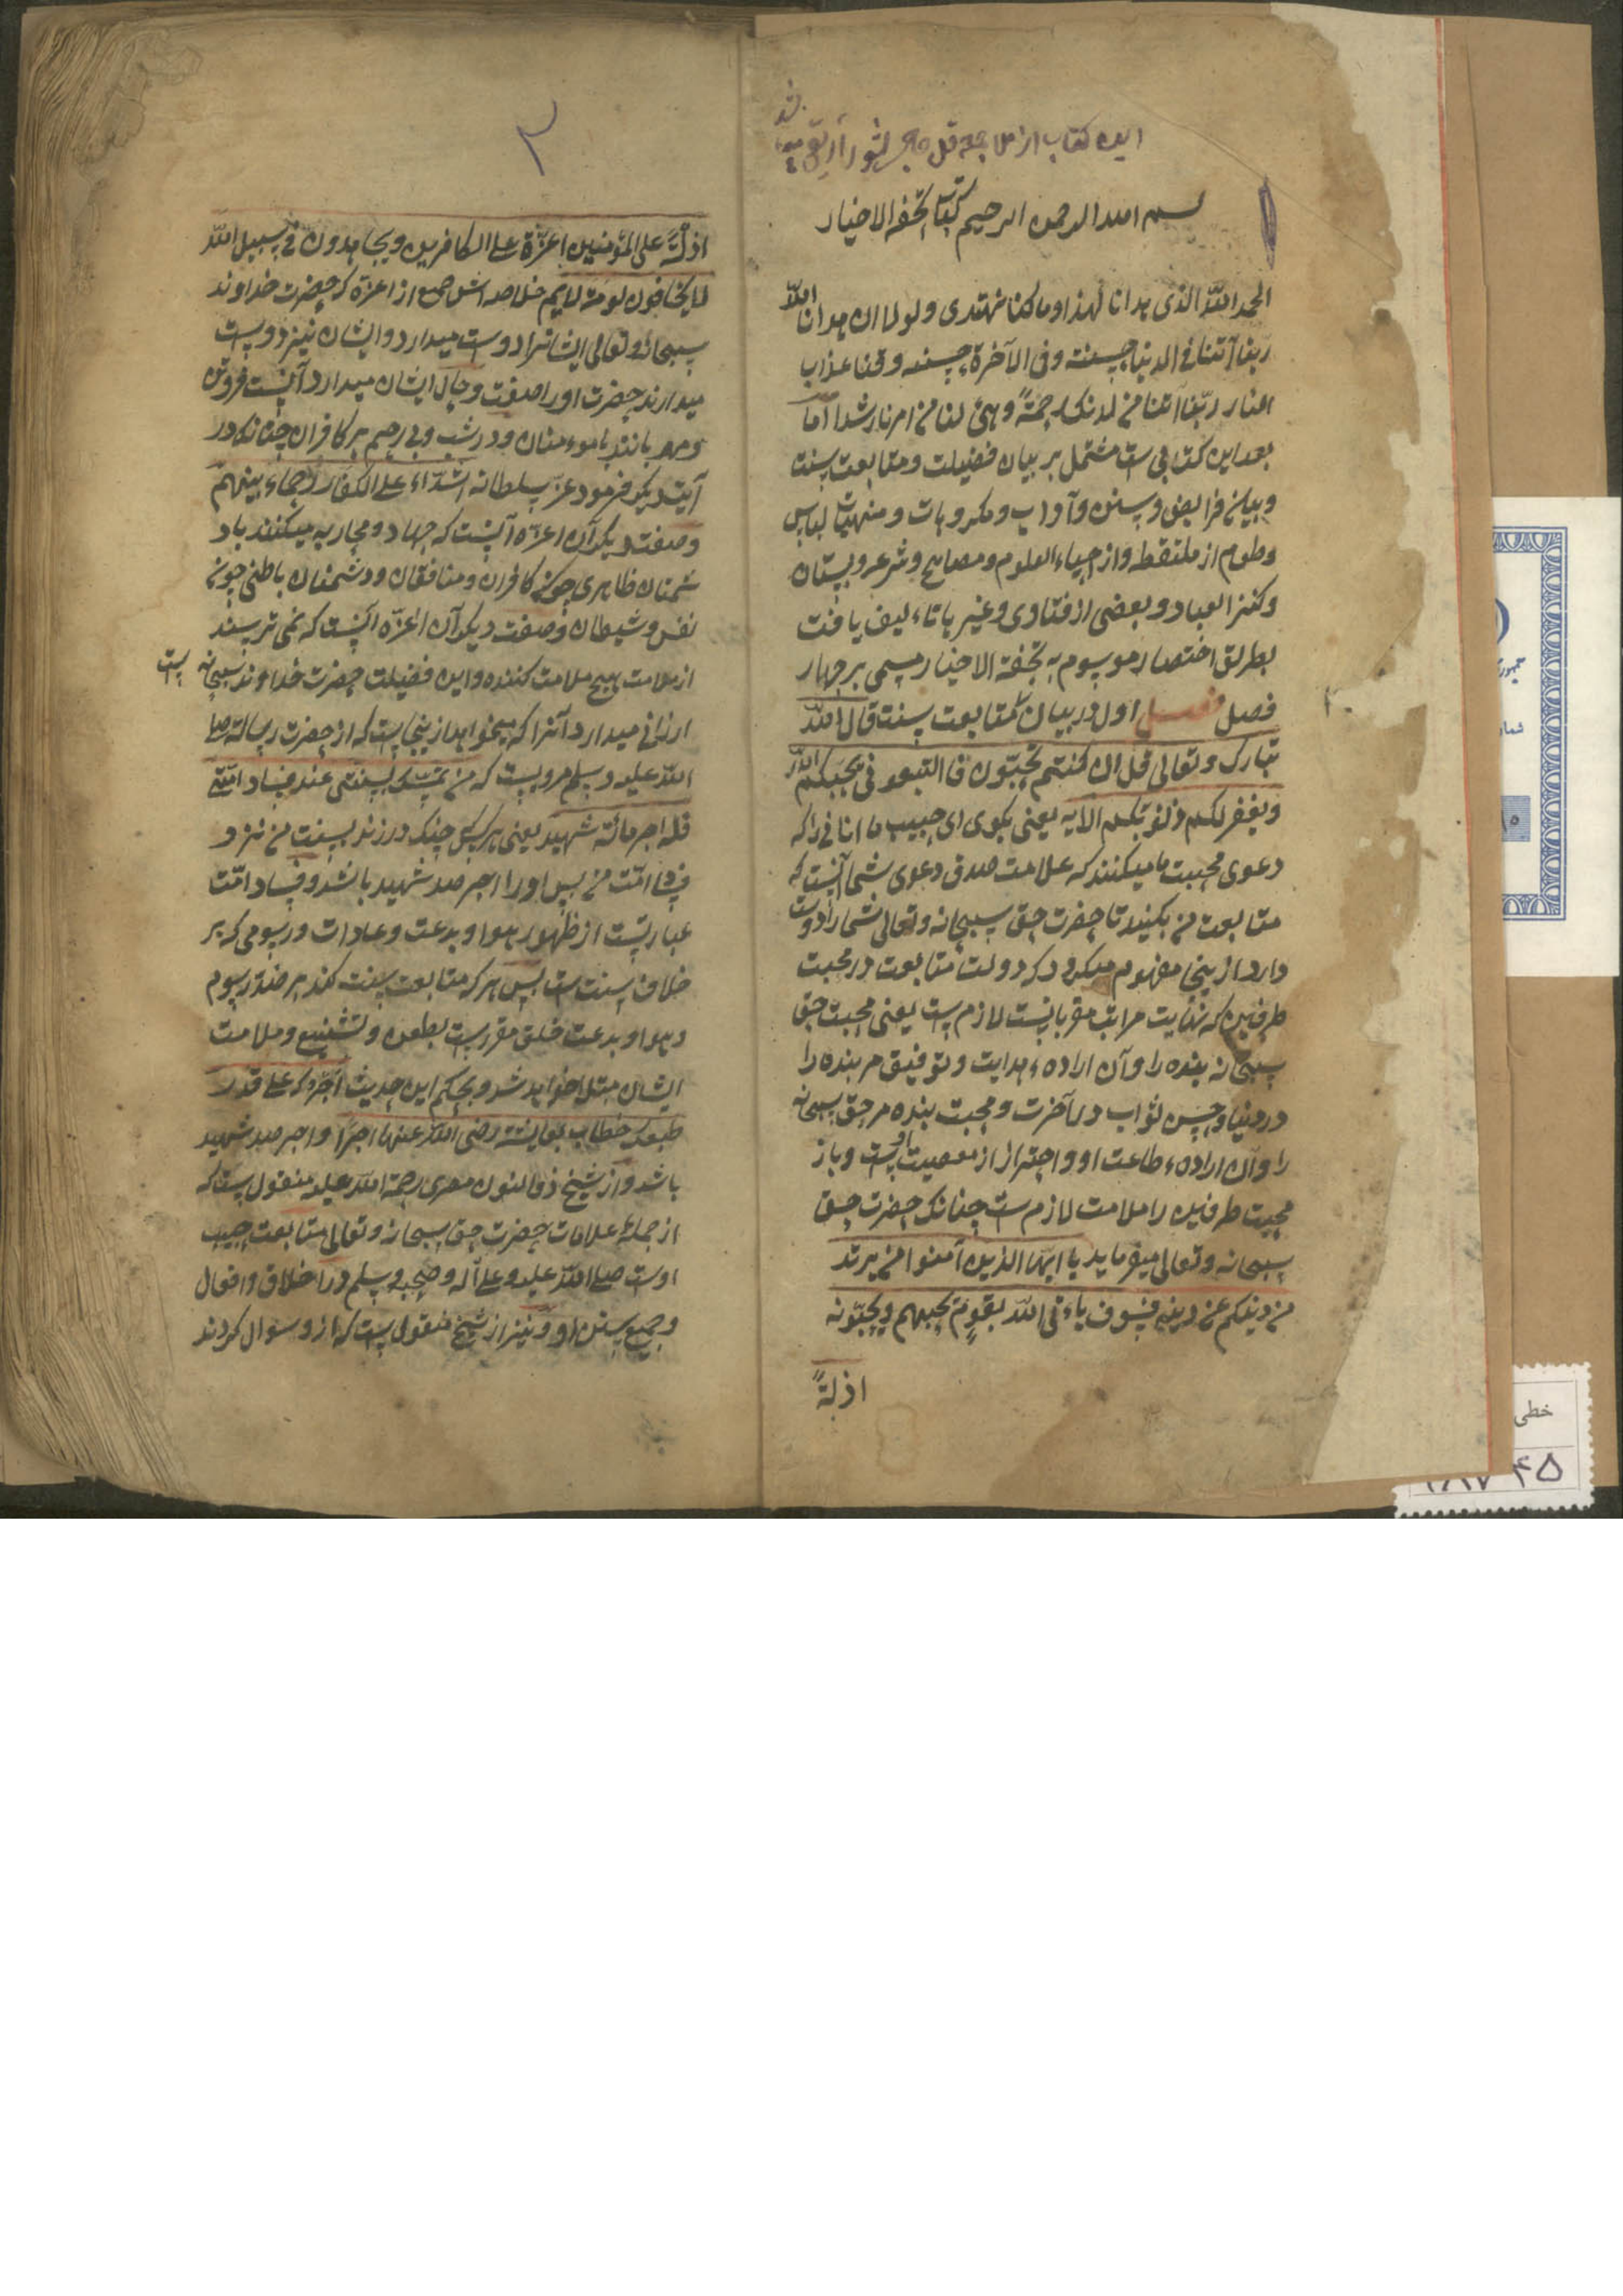 این کتاب از ملا
بسم الله الرحمن الرحیم کتاب تحفة الاخیار
الحمد الله الذی هدانا لهذا وما کنا نهتدی ولولا ان هدانا الله
ربنا آتنا فی الدنیا حسنة وفی الآخرة حسنة وقنا عذاب
النار ربّنا آتنا من لدنک رحمةً وهیّئ لنا من امرنا رشدا امّا
بعد این کتابی ست مشتمل بر بیان فضیلت ومتابعت سنت
وبیان فرایض وسنن وآداب ومکروهات ومنهیات لباس
وطعام از ملتقطه واز احیاء العلوم ومصابیح وشرعه وبستان
وکنز العباد وبعضی از فتاوی وغیرها تاءلیف یافت
بطریق اختصار موسوم به تحفة الاخیار مسمی بر چهار
فصل فصل اول در بیان متابعت سنت قال الله
تبارک وتعالی قل ان کنتم تحبّون الله فاتبعونی یحببکم الله
ویغفر لکم ذنوبکم الایه یعنی بکوی ای حبیب ما آنانی را که
دعوی محبت ما میکنند که علامت صدق دعوی شما آنست که
متابعت من بکنید تا حضرت حق سبحانه وتعالی شما را دوست
دارد از ینجا مفهوم میکردد که دولت متابعت در محبت
طرفین که نهایت مراتب مقربانست لازم ست یعنی محبت حق
سبحانه بنده را وآن اراده ء هدایت وتوفیق مر بنده را
در دنیا وحسن ثواب در آخرت ومحبت بنده مر حق سبحانه
را وآن اراده ء طاعت او واحتراز از معصیت اوست وباز
محبت طرفین را ملامت لازم ست چنانک حضرت حق
سبحانه وتعالی میفرماید یا ایها الذین آمنوا من یرتد
منکم عن دینه فسوف یاءتی الله بقومٍ یحبهم ویحبّونه
اذلةً
۲
اذلّةً علی المؤمنین اعزّة علی الکافرین ویجاهدون فی سبیل الله
لا یخافون لومة لایم خلاصه اش جمع از اعزة که حضرت خداوند
سبحانه وتعالی ایشانرا دوست میدارد وایشان نیز دوست
میدارند حضرت اورا صفت وحال ایشان میدارد آنست فروتن
ومهربانند با موءمنان ودرشت وبی رحیم بر کافران چنانکه در
آیت دیکر فرمود عزّ سلطانه اشدّاء علی الکفار رحماء بینهم
وصفت دیکر آن اعزّه آنست که جهاد ومحاربه میکنند باد
شمنان ظاهری چون کافران ومنافقان ودشمنان باطنی چون
نفس وشیطان وصفت دیکر آن اعزّه آنست که نمی ترسند
از ملامت هیچ ملامت کننده واین فضیلت حضرت خداوند سبحانه است
ارزانی میدارد آنرا که میخواهد از ینجا ست که از حضرت رسالت صلی
الله علیه وسلم مرویست که من تمسّک بسنتی عند فساد امّتی
فله اجر مائة شهید یعنی هر کس چنک در زند بسنت من نزد
فساد امّت من پس او را اجر صد شهید باشد وفساد امّت
عبارتست از ظهور هوا وبدعت وعادات ورسومی که بر
خلاف سنت ست پس هر که متابعت سنت کند بر ضد رسوم
وهوا وبدعت خلق مقررست بطعن وتشنیع وملامت
ایشان مبتلا خواهد شد وبحکم این حدیث اجرک علی قدر
خطاب بعایشه رضی الله عنها اجرًا واجر صد شهید
باشد واز شیخ ذو النون مصری رحمة الله علیه منقول ست که
از جملهٔ علامات حضرت حق سبحانه وتعالی متابعت حبیب
اوست صلی الله علیه وعلی آله وصحبه وسلم در اخلاق وافعال
وجمیع سنن او ونیز از شیخ منقول ست که ازو سوال کردند
خطی